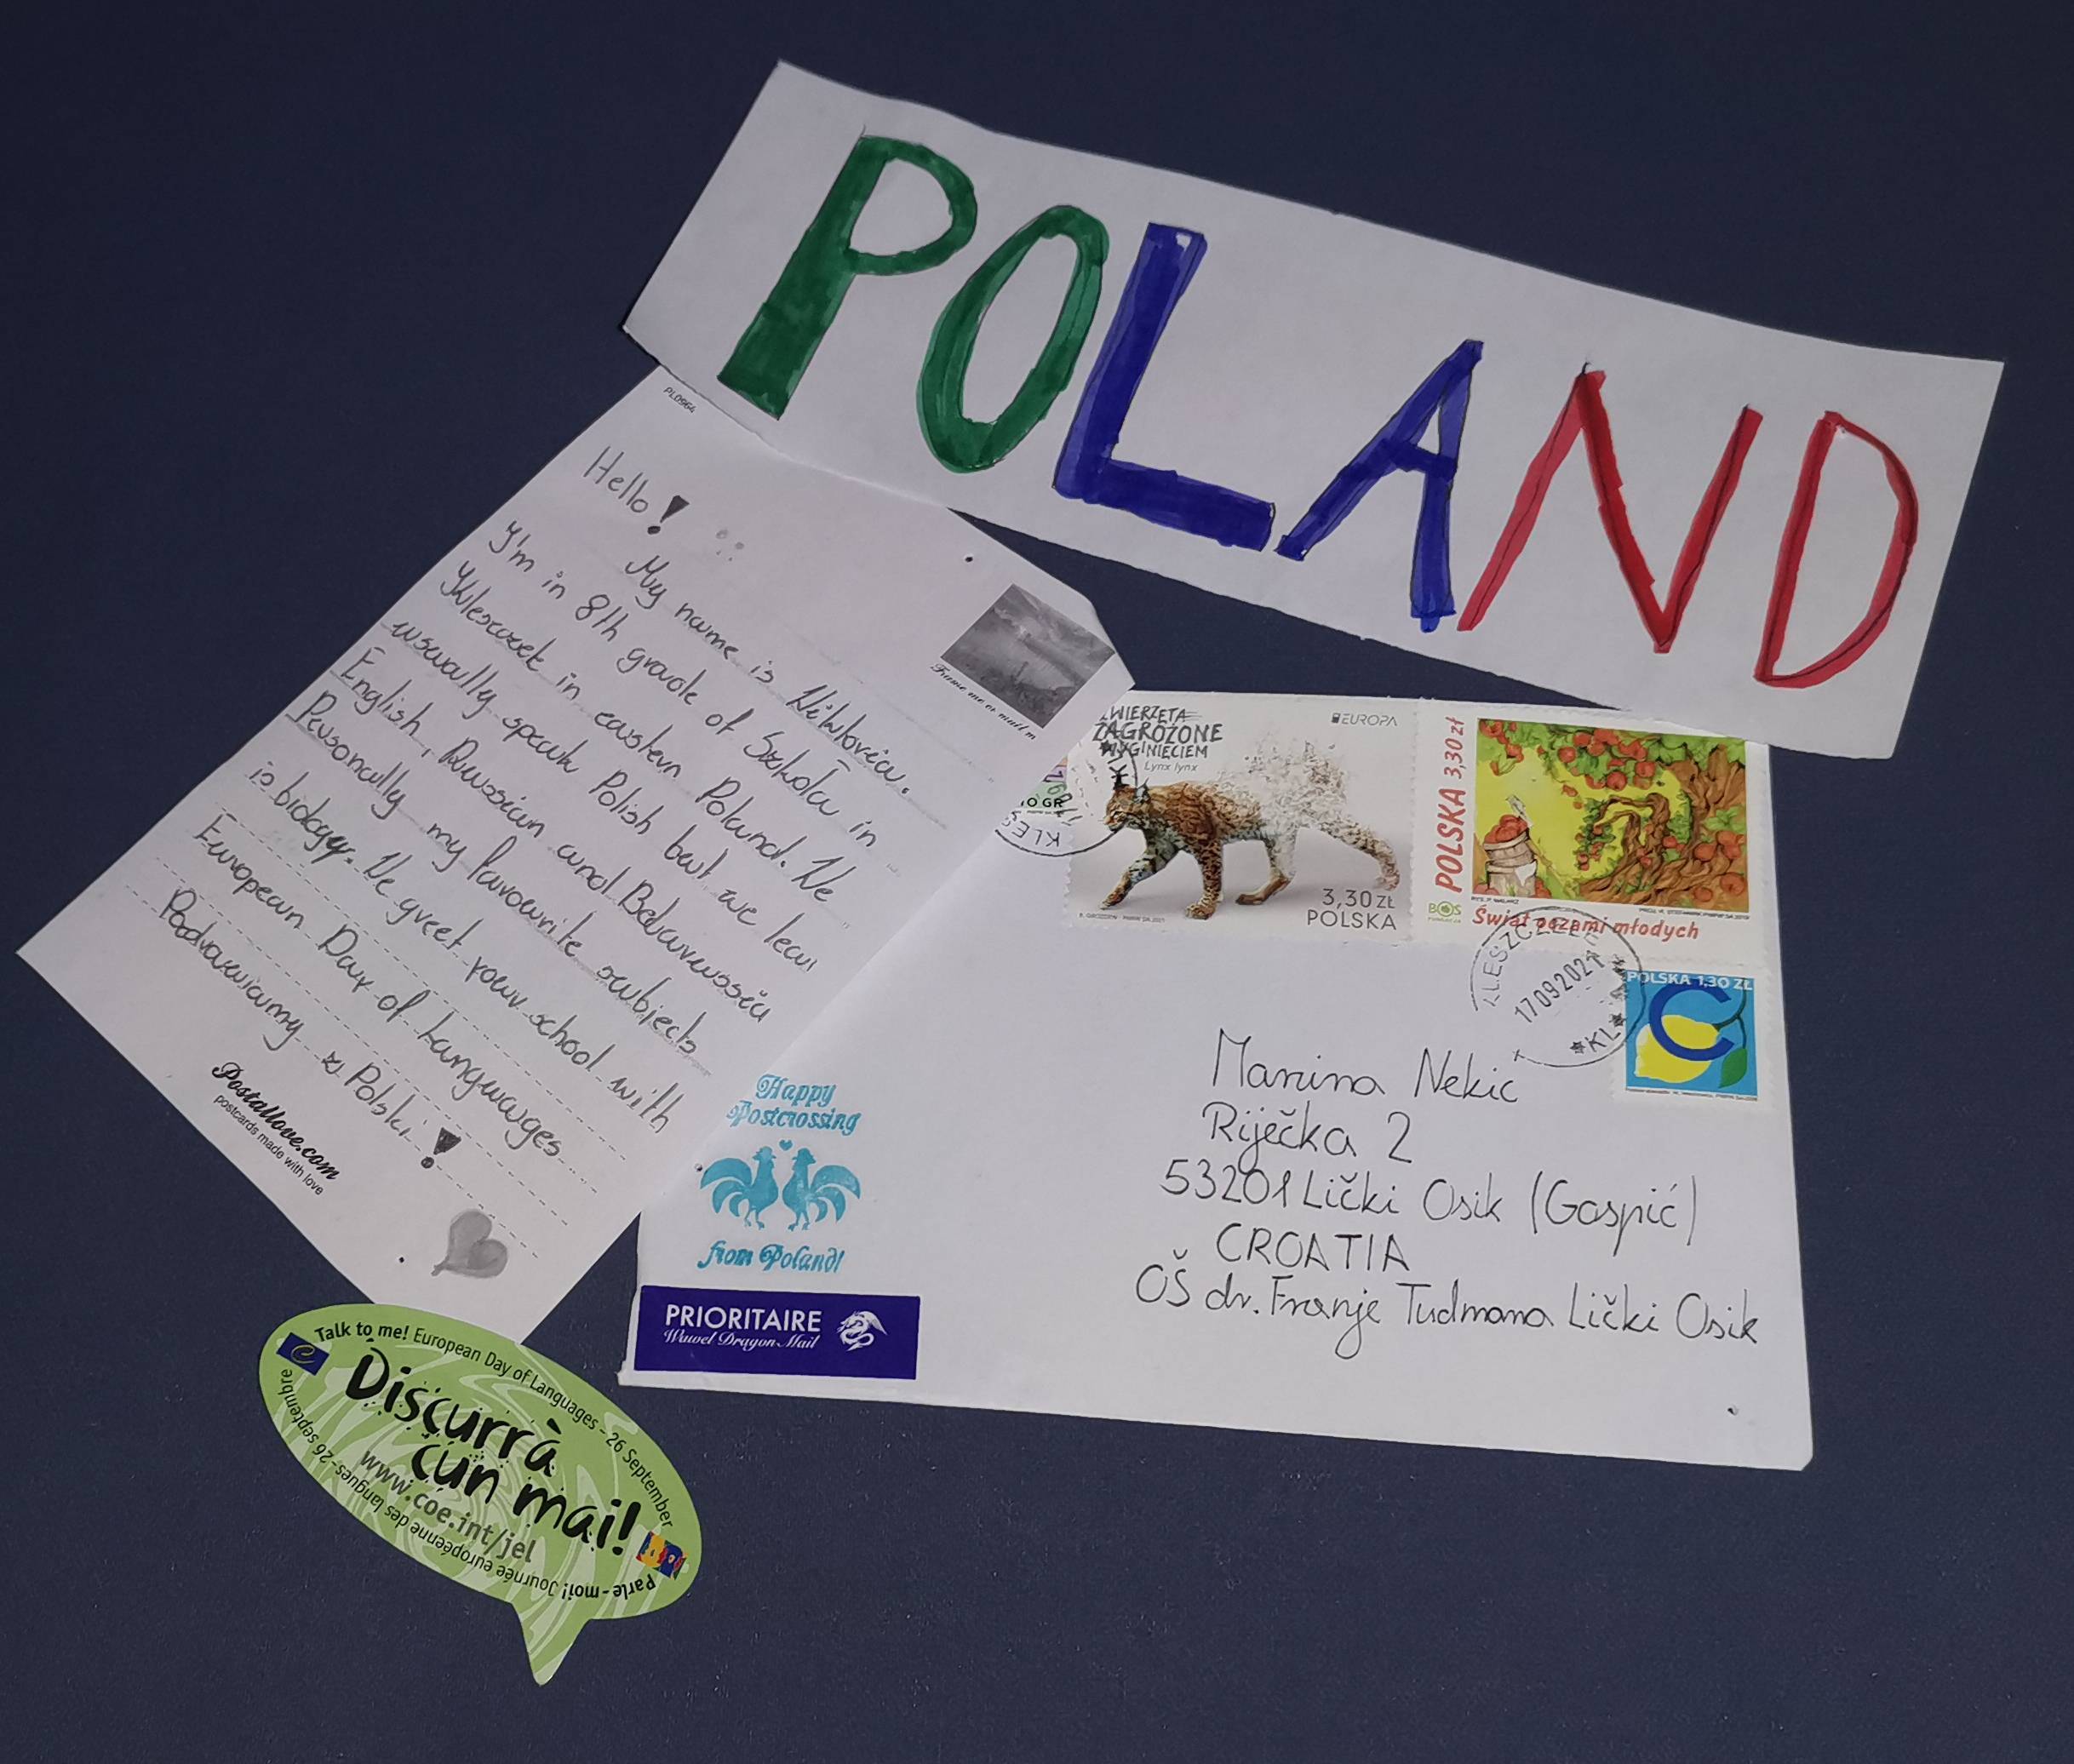 POLAND
PL0564
Hello!
My name is Wiktoria.
I'm in 8th grade of Szkoła in
Kleszczele in eastern Poland. We
usually speak Polish but we lear
English, Russian and Belarussia
Personally my favourite subjects
is biology. We greet your school with
European Day of Languages
Pozdrawiamy z Polski!
Postallove.com
postcards made with love
Frame me or mail m
ZWIERZĘTA
ZAGROŻONE
WYGINIĘCIEM
Lynx lynx
EUROPA
10 GR
3,30 ZŁ
POLSKA
POLSKA 3,30 zł
BOŚ
Świat oczami młodych
17092021
POLSKA 1,30 ZŁ
C
Marina Nekic
Riječka 2
53201 Lički Osik (Gospić)
CROATIA
OŠ dr. Franje Tudmana Lički Osik
Happy
Postcrossing
from Poland!
PRIORITAIRE
Wawel Dragon Mail
Talk to me! European Day of Languages - 26 September
Discurrà
cun mai!
www.coe.int/jel
Parle-moi! Journée européenne des langues - 26 septembre